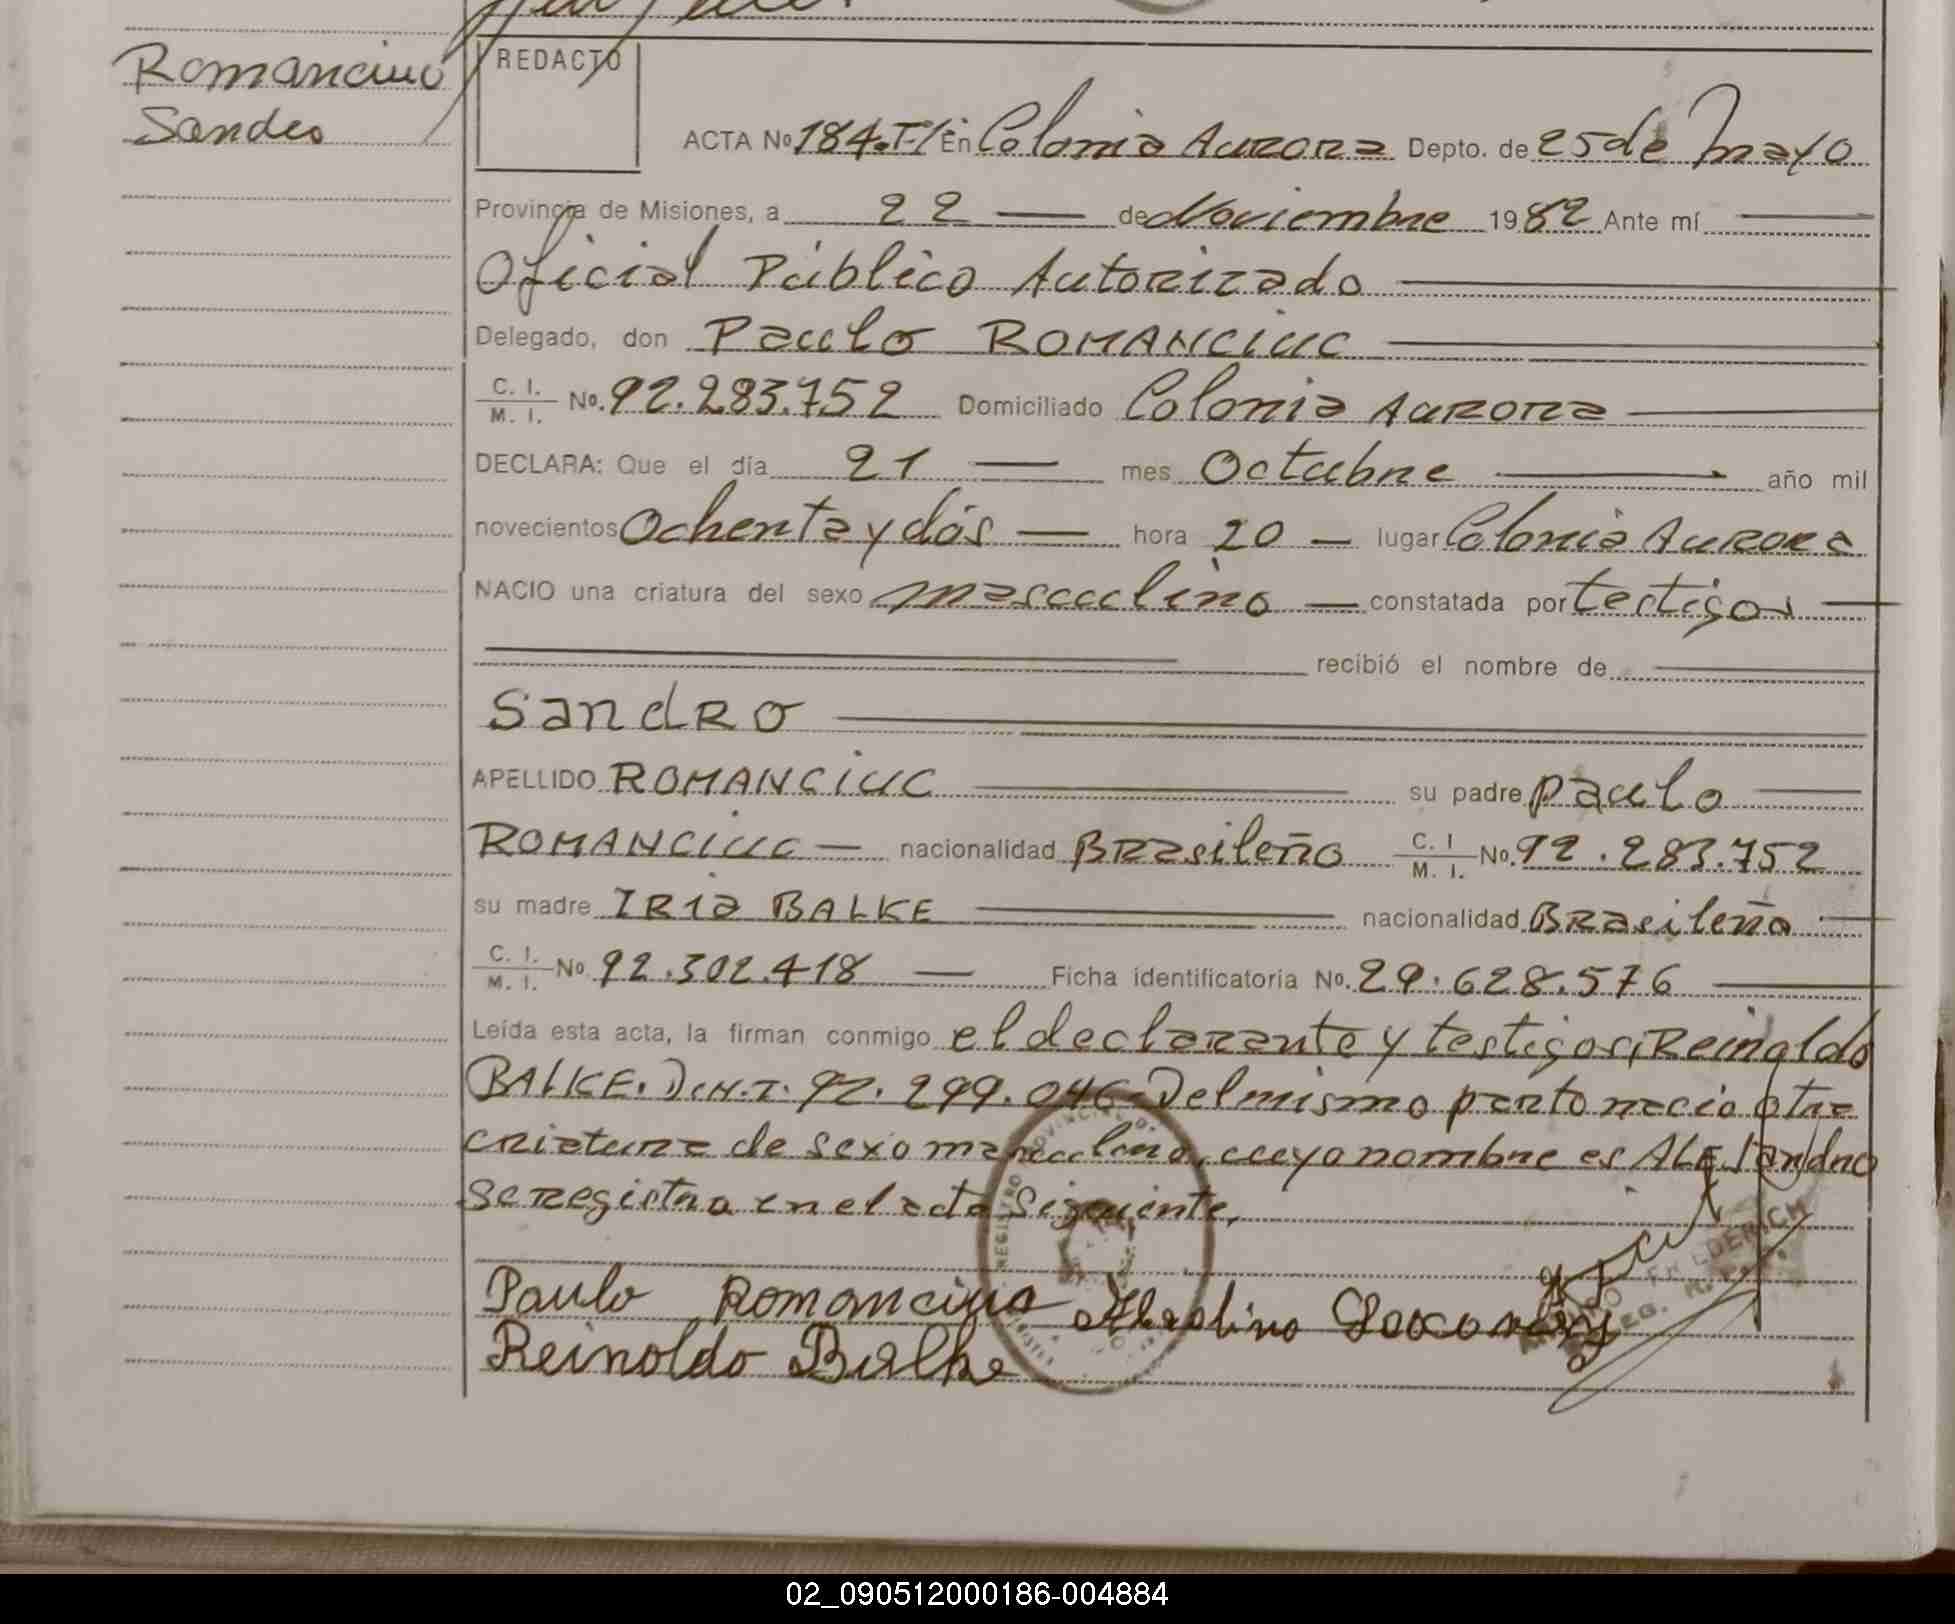 Romanciuc
Sandro
REDACTO
ACTA No 184.T-I En Colonia Aurora Depto. de 25 de mayo
Provincia de Misiones, a 22 de Noviembre 1982 Ante mí
Oficial Público Autorizado
Delegado, don Paulo ROMANCIUC
C. I. / M. I. No. 92.283.752 Domiciliado Colonia Aurora
DECLARA: Que el día 21 mes Octubre año mil
novecientos Ochenta y dós hora 20 lugar Colonia Aurora
NACIO una criatura del sexo masculino constatada por testigos
recibió el nombre de
Sandro
APELLIDO ROMANCIUC su padre Paulo
ROMANCIUC nacionalidad Brasileño C. I / M. I. No. 92.283.752
su madre IRia BALKE nacionalidad Brasileña
C. I. / M. I. No 92.302.418 Ficha identificatoria No. 29.628.576
Leída esta acta, la firman conmigo el declarante y testigos, Reinaldo
BALKE. D.N.I. 92.299.046 Del mismo parto nacio otra
criatura de sexo masculino, cuyo nombre es ALEJandro
se registra en el acta Siguiente,
Paulo Romanciuc
Reinoldo Balke
02_090512000186-004884